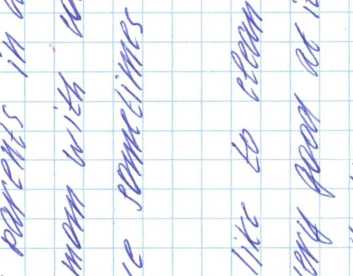 parents in a
mom with
e sometimes
like to clean
ery good at i